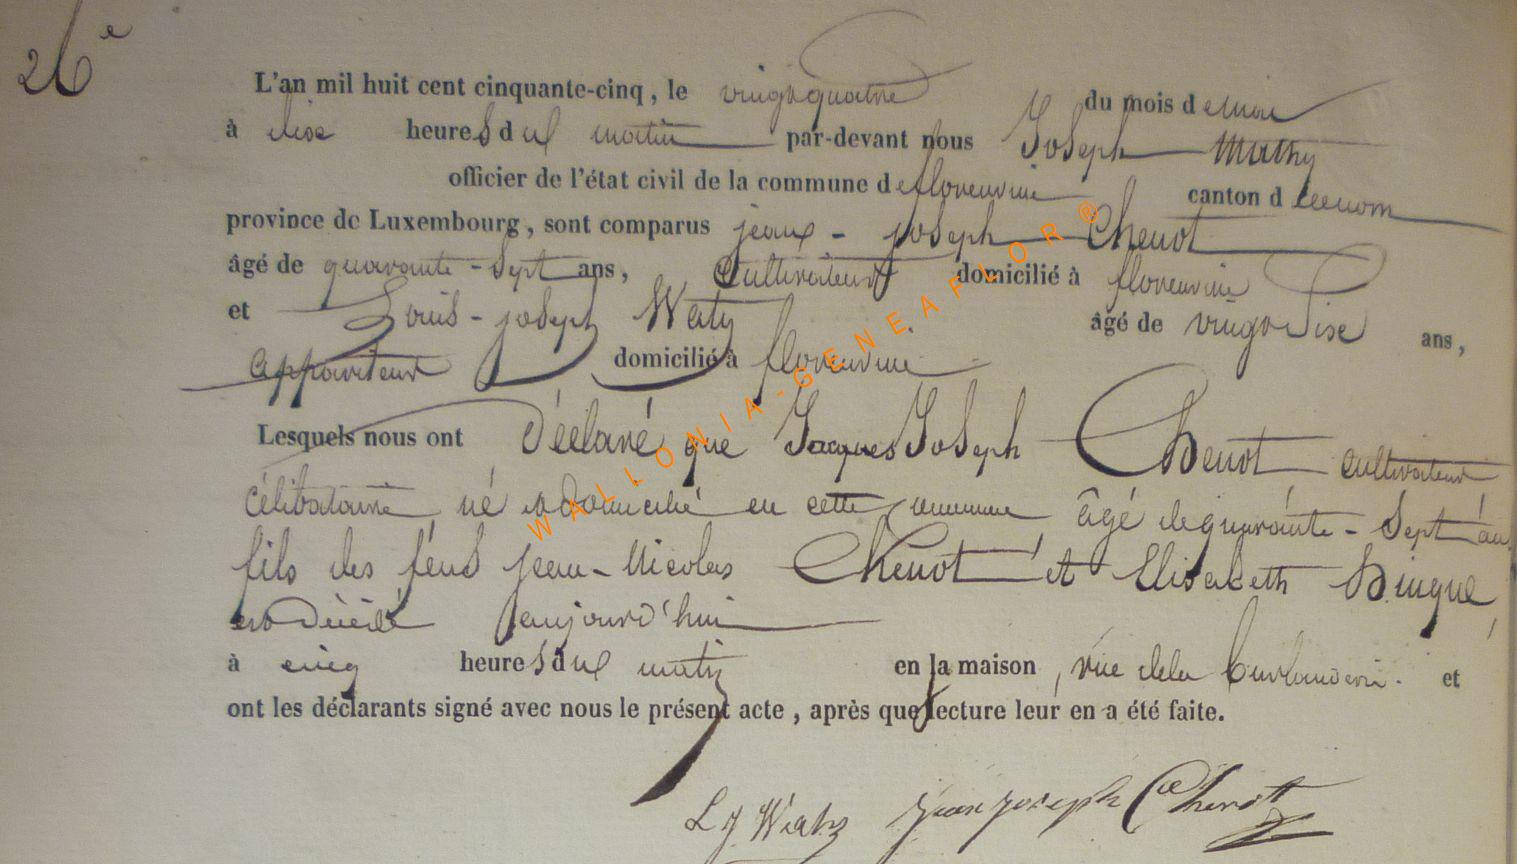 26e
L'an mil huit cent cinquante-cinq, le vingt quatre du mois de mai
à dix heures du matin par-devant nous Joseph Mathy
officier de l'état civil de la commune de florenville canton d
province de Luxembourg, sont comparus jean - joseph Chenot
âgé de quarante - sept ans, Cultivateur domicilié à florenville
et Louis - joseph Watz âgé de vingt six ans,
appariteur domicilié à florenville
Lesquels nous ont Déclaré que Jacques Joseph Chenot cultivateur
célibataire né et domicilié en cette commune âgé de quarante - sept ans
fils des feus jean - Nicolas Chenot et Elisabeth
est Décédé aujourd'hui
à cinq heures du matin en la maison, rue de la et
ont les déclarants signé avec nous le présent acte, après que lecture leur en a été faite.
L J Watz jean joseph Chenot
WALLONIA-GENEAFLOR®